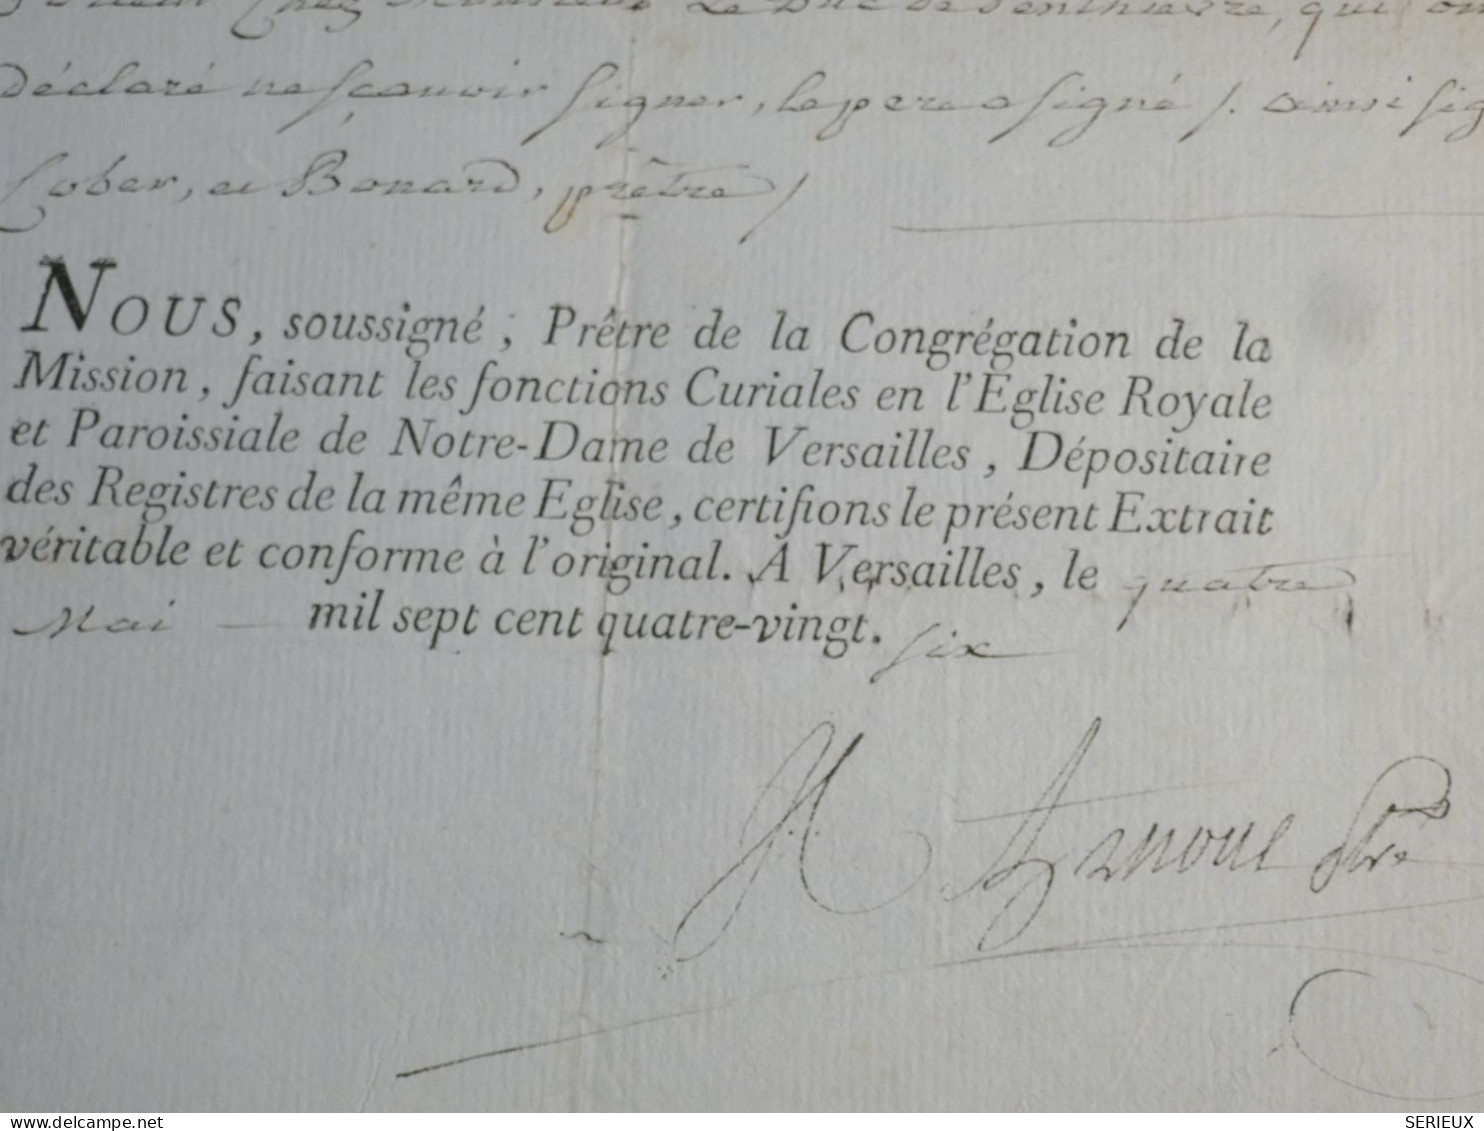 Chez Monsieur Le Duc de Penthievre, qui on
Déclaré ne sçauoir signer, le pere a signé /. ainsi sig
Cober, et Bonard, prêtre /
NOUS, soussigné, Prêtre de la Congrégation de la
Mission, faisant les fonctions Curiales en l'Eglise Royale
et Paroissiale de Notre-Dame de Versailles, Dépositaire
des Registres de la même Eglise, certifions le présent Extrait
véritable et conforme à l'original. A Versailles, le quatre
Mai mil sept cent quatre-vingt. six
Arnoul ptre
delcampe.net
SERIEUX